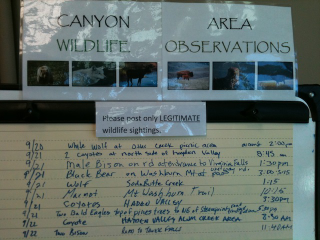 CANYON AREA
WILDLIFE OBSERVATIONS
Please post only LEGITIMATE
wildlife sightings.
9/20 Wolf at Otter Creek picnic area around 2:00 pm
9/21 2 coyotes at north side of Hayden Valley 8:45 am
9/21 Male Bison on rd at entrance to Virginia Falls 1:30 pm
9/21 Black Bear on Washburn Mt at 3:00-3:15
9/21 Wolf Soda Butte Creek 1-15
9/21 Marmot Mt Washburn Trail
9/21 Coyotes HADEN VALLEY 3:30pm
Two Bald Eagles top of pines trees to NE of
9/22 Coyote HAYDEN VALLEY ALUM CREEK AREA AM
9/22 Two Bison 11:40 AM